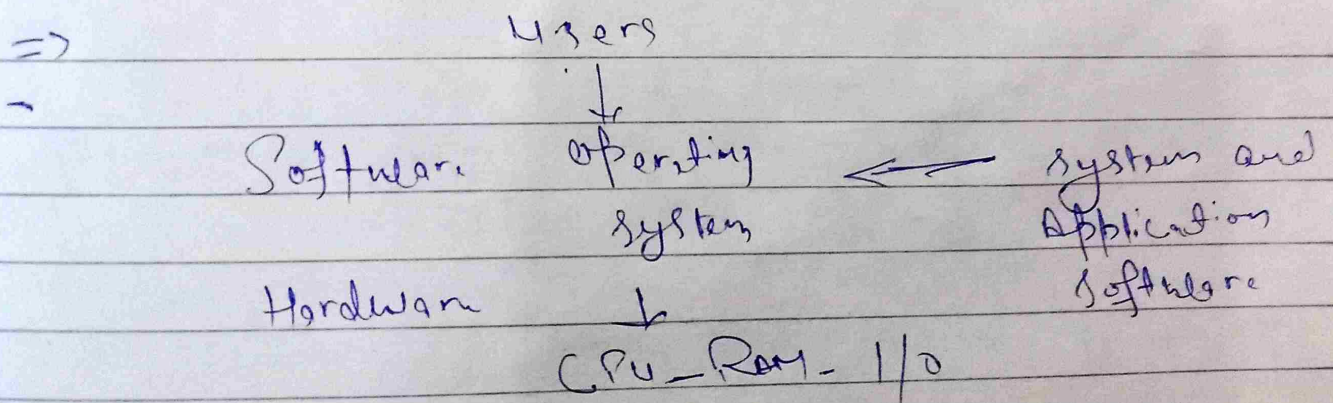 => Users
Software Operating system and
system Application
Hardware software
CPU - RAM - I/O